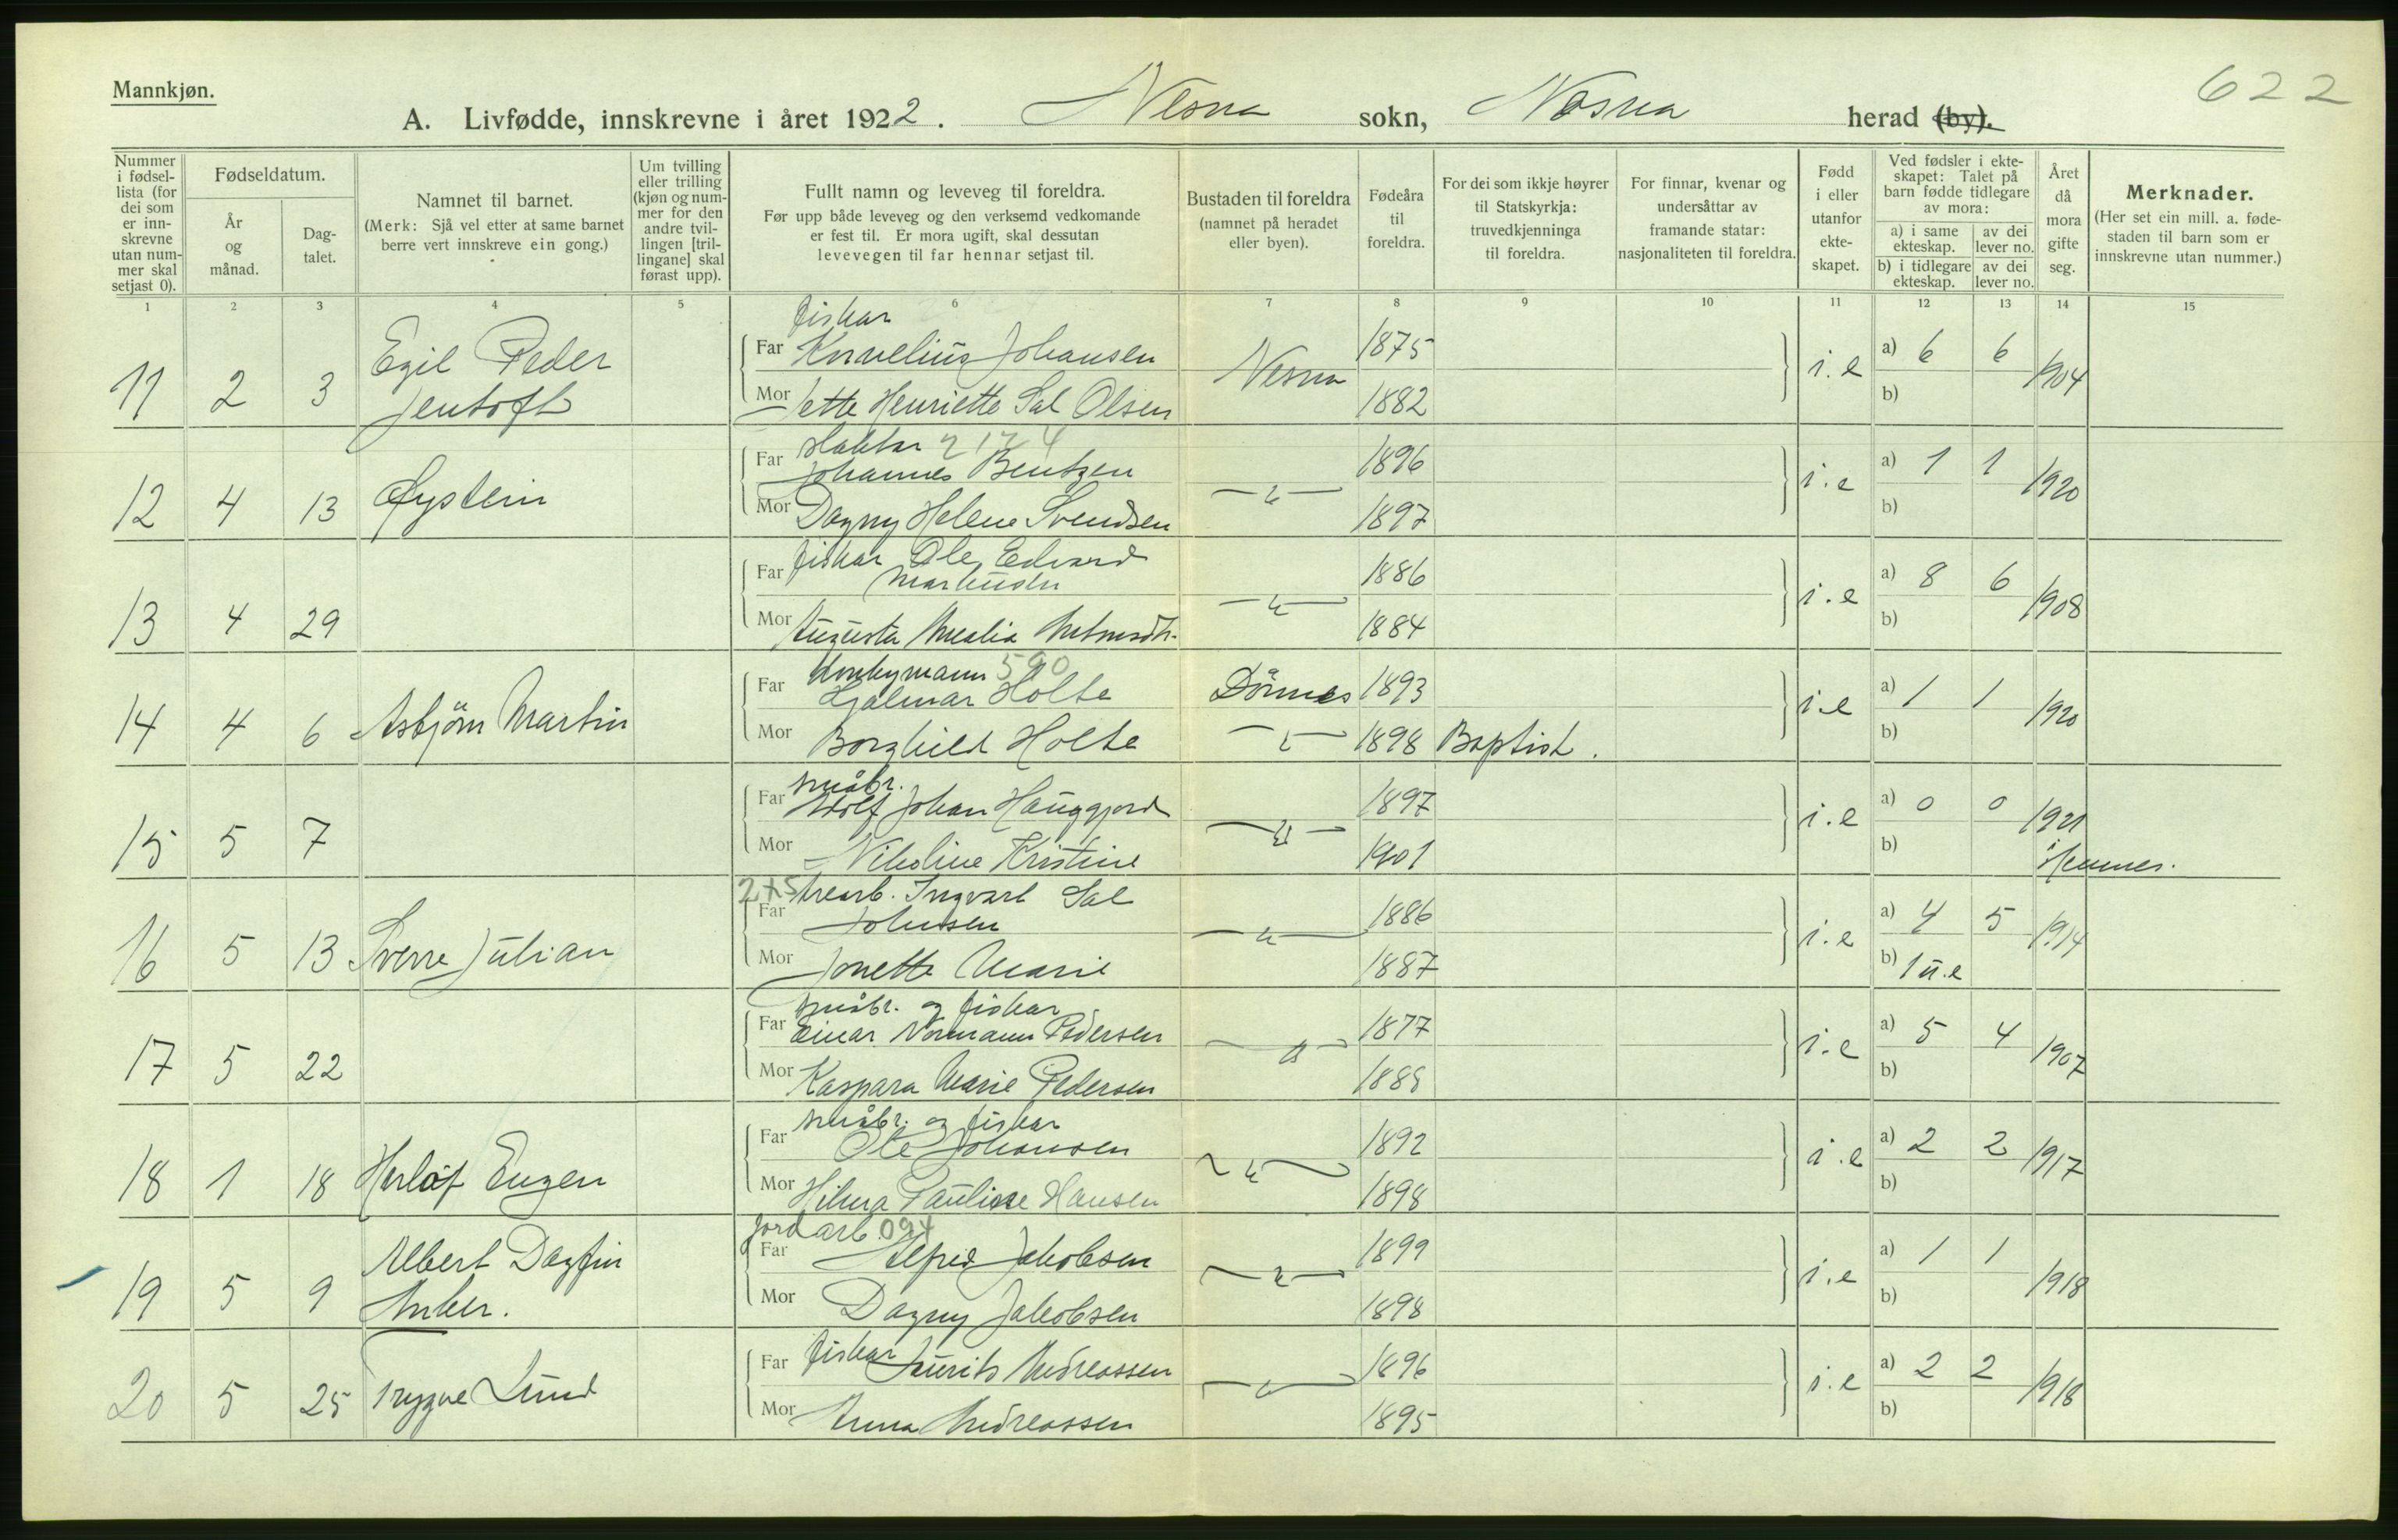 622
Mannkjøn.
A. Livfødde, innskrevne i året 1922. Nesna sokn, Nesna herad (by).
Nummer i fødsel-lista (for dei som er inn-skrevne utan num-mer skal setjast 0).
Fødseldatum.
År og månad.
Dag-talet.
Namnet til barnet.
(Merk: Sjå vel etter at same barnet berre vert innskreve ein gong.)
Um tvilling eller trilling (kjøn og num-mer for den andre tvil-lingen [tril-lingane] skal førast upp).
Fullt namn og leveveg til foreldra.
Før upp både leveveg og den verksemd vedkomande er fest til. Er mora ugift, skal dessutan levevegen til far hennar setjast til.
Bustaden til foreldra (namnet på heradet eller byen).
Fødeåra til foreldra.
For dei som ikkje høyrer til Statskyrkja: truvedkjenninga til foreldra.
For finnar, kvenar og undersåttar av framande statar: nasjonaliteten til foreldra.
Fødd i eller utanfor ekte-skapet.
Ved fødsler i ekte-skapet: Talet på barn fødde tidlegare av mora:
a) i same ekteskap. av dei lever no.
b) i tidlegare ekteskap. av dei lever no.
Året då mora gifte seg.
Merknader.
(Her set ein mill. a. føde-staden til barn som er innskrevne utan nummer.)
1 2 3 4 5 6 7 8 9 10 11 12 13 14 15
fiskar
11 2 3 Egil Peder Jentoft Far Kornelius Johansen Nesna 1875 i.e a) 6 6 1904
Mor Jette Henriette Sal Olsen 1882 b)
2174
12 4 13 Øystein Far Johannes Bentzen — " — 1896 i.e a) 1 1 1920
Mor Dagny Helene Svendsen 1897 b)
13 4 29 Far fiskar Ole Edvard Markusen — " — 1886 i.e a) 8 6 1908
Mor Augusta Amalia 1884 b)
590
14 4 6 Asbjörn Martin Far Hjalmar Holte Dönnes 1893 i.e a) 1 1 1920
Mor Borghild Holte — " — 1898 Baptist. b)
småbr.
15 5 7 Far Adolf Johan Hauggjord — " — 1897 i.e a) 0 0 1921
Mor Nikoline Kristine 1901 b) i Hemnes.
2x5 trearb. Ingvart Sal
16 5 13 Sverre Julian Far Johnsen — " — 1886 i.e a) 4 5 1914
Mor Jonette Marie 1887 b) 1 u.e
småbr. og fiskar
17 5 22 Far Einar Normann Pedersen — " — 1877 i.e a) 5 4 1907
Mor Kaspara Marie Pedersen 1888 b)
småbr. og fiskar
18 1 18 Herlof Eugen Far Ole Johansen — " — 1892 i.e a) 2 2 1917
Mor Hilma Pauline Hansen 1898 b)
jordarb. 094
19 5 9 Albert Dagfin Anker. Far Alfred Jakobsen — " — 1899 i.e a) 1 1 1918
Mor Dagny Jakobsen 1898 b)
20 5 25 Trygve Lund Far fiskar Laurits Andreassen — " — 1896 i.e a) 2 2 1918
Mor Anna Andreassen 1895 b)